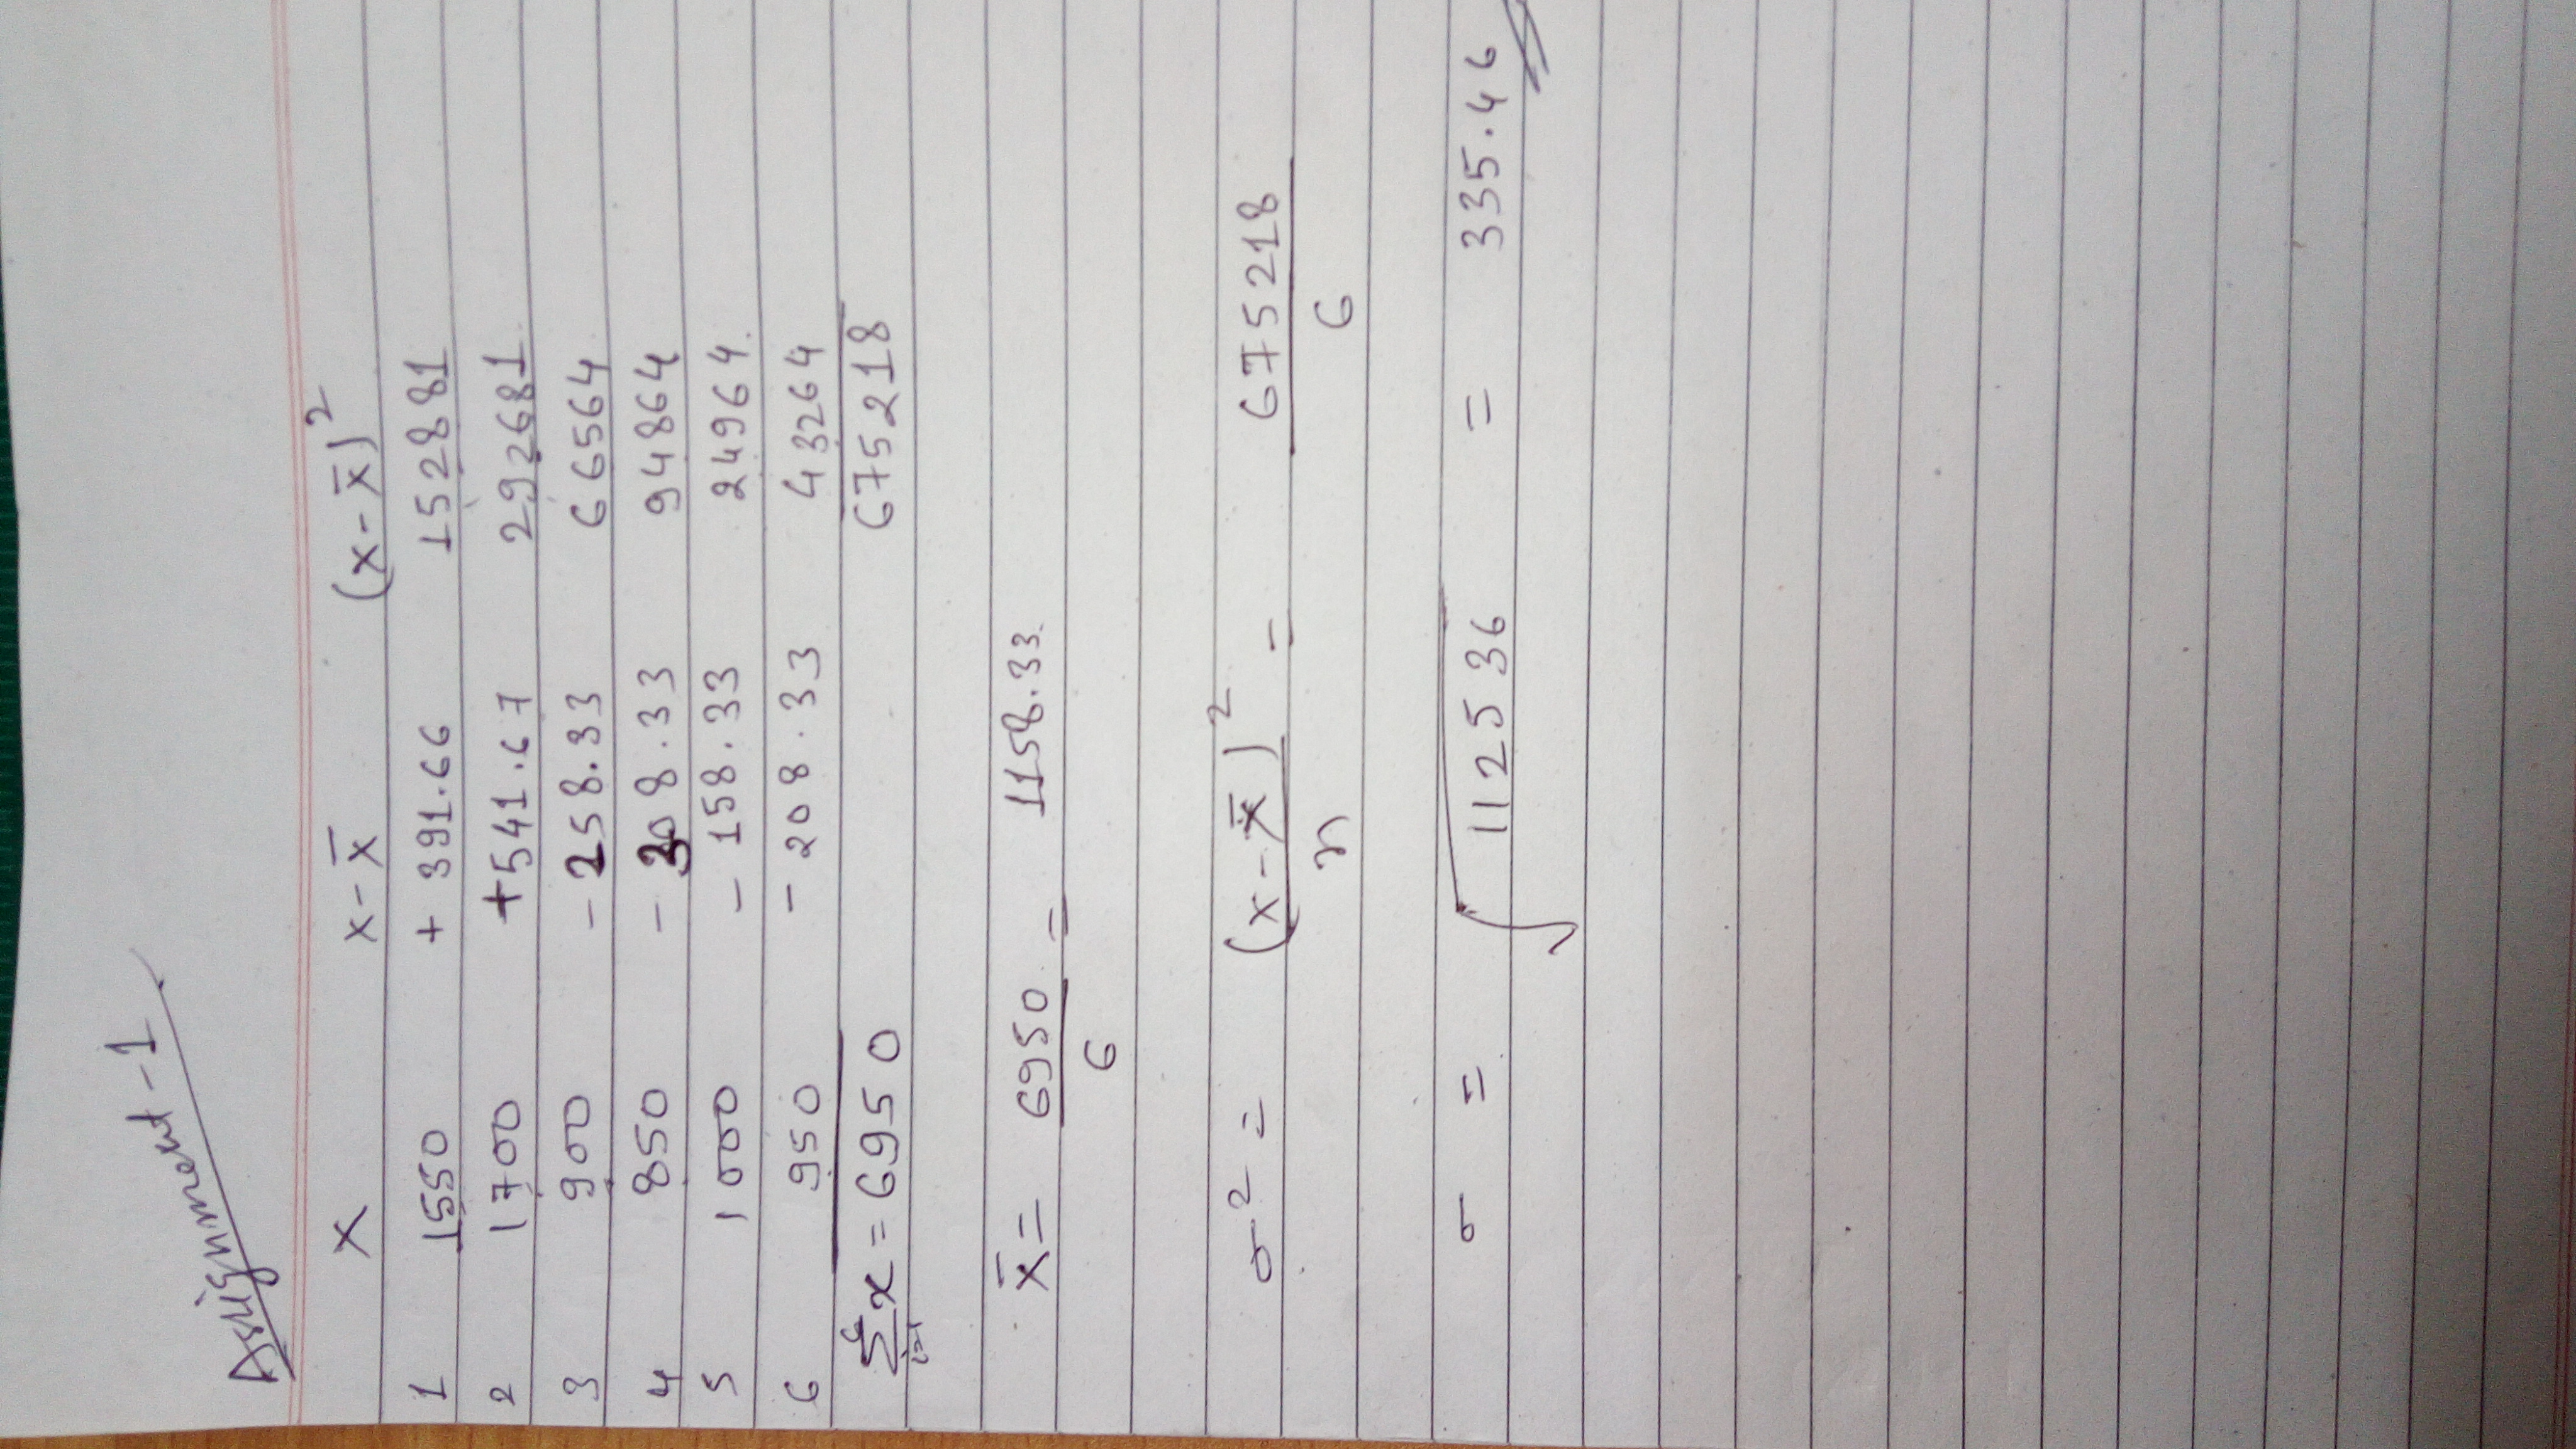 Assignment-1
X x-x̄ (x-x̄)²
1 1550 +391.66 152881
2 1700 +541.67 292681
3 900 -258.33 66564
4 850 -308.33 94864
5 1000 -158.33 24964
6 950 -208.33 43264
6 Σ i=1 x = 6950 675218
x̄ = 6950/6 = 1158.33
σ² = (x-x̄)²/n = 675218/6
σ = √112536 = 335.46